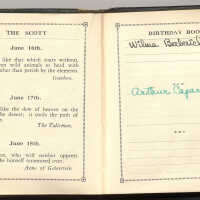 THE SCOTT
June 16th.
like that which soars without,
wild animals to herd with
than perish by the elements.
Ivanhoe.
June 17th.
like the dew of heaven on the
desert; it cools the path of
The Talisman.
June 18th.
who will neither oppress
himself oppressed
Anne of Geierstein
BIRTHDAY BOO
Wilma
Arthur